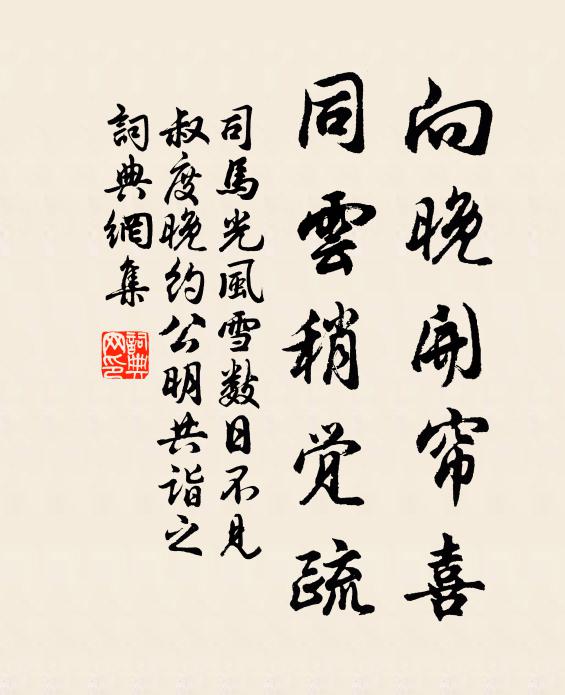 向晚開帘喜
同雲稍覺疏
司馬光風雪数日不見
叔度晚約公明共詣之
詞典網集
詞典网印